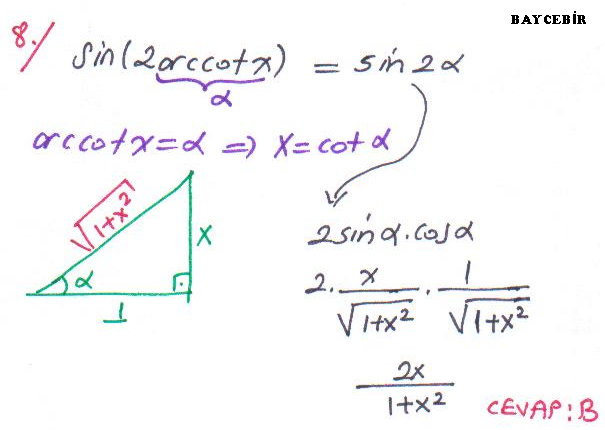 BAY CEBİR
8./ sin(2arccotx) = sin2α
α
arccotx=α ⇒ x=cotα
√1+x²
x
α
1
2sinα.cosα
2. x/√1+x² . 1/√1+x²
2x/1+x²
CEVAP:B